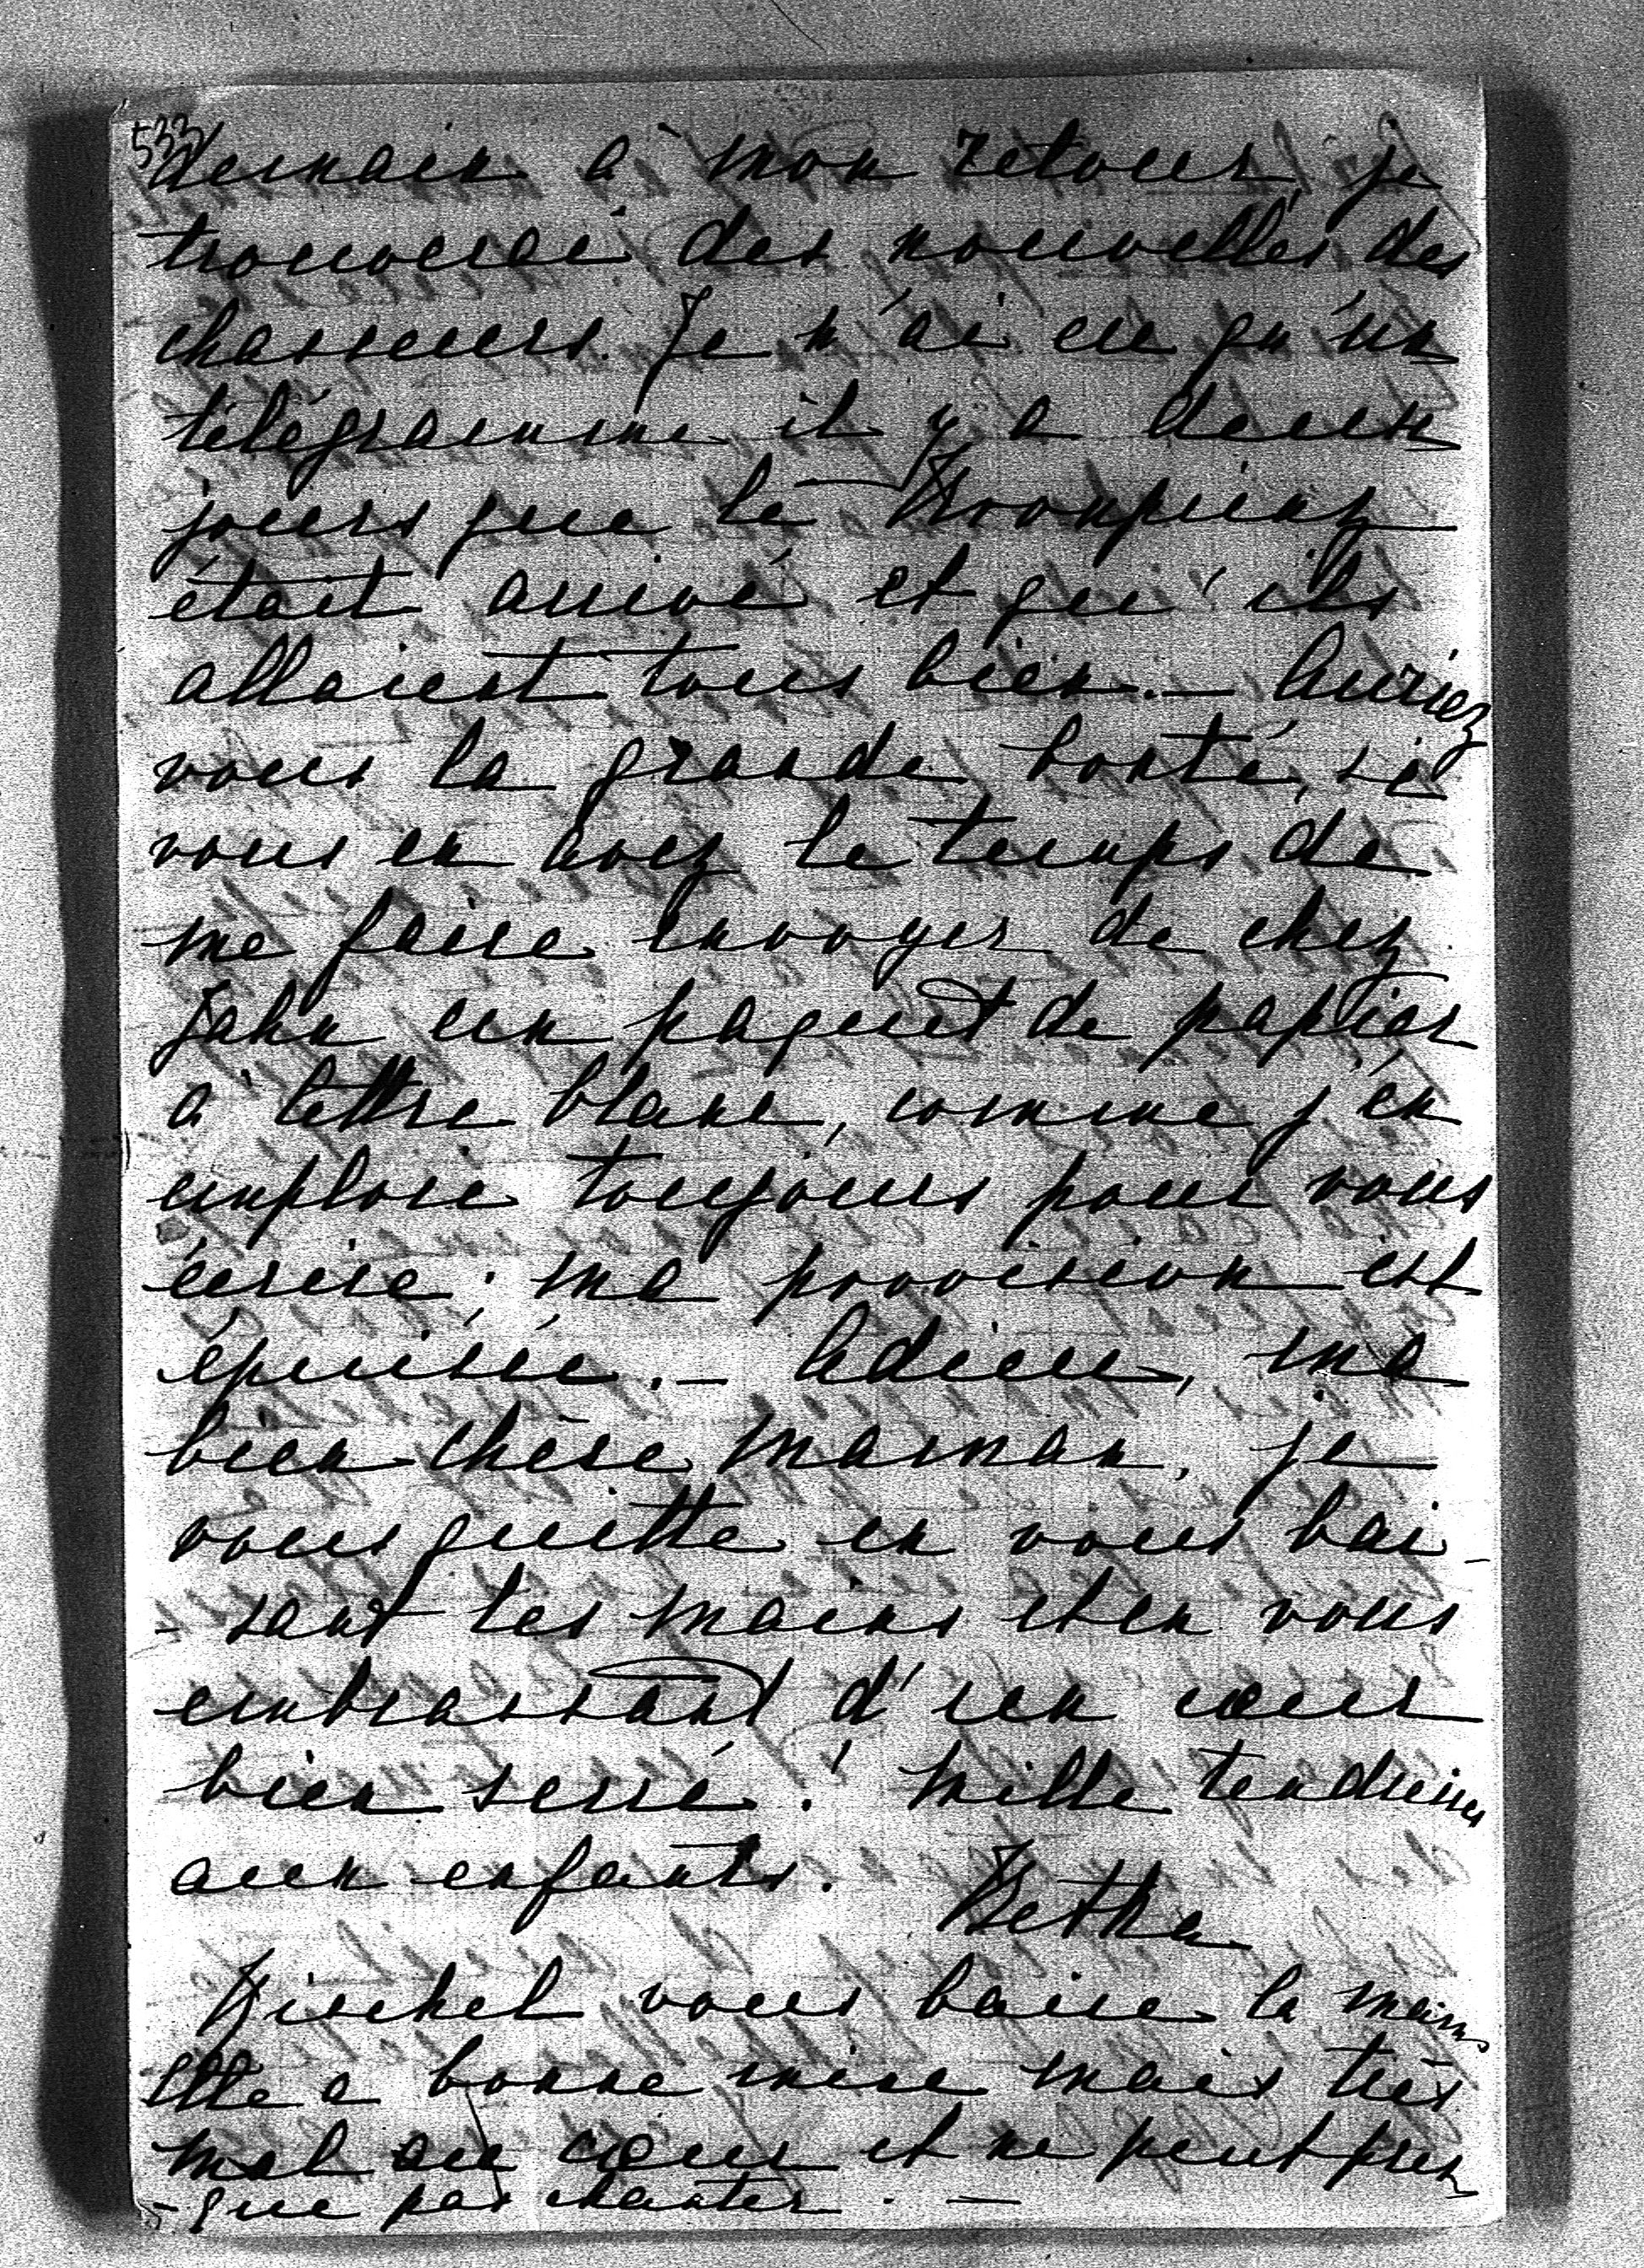 533
demain à mon retour, je
trouverai des nouvelles des
chasseurs. Je n'ai eu qu'un
télégramme il y a deux
jours que le
était arrivé et qu'ils
allaient tous bien. — Auriez
vous la grande bonté, si
vous en avez le temps de
me faire envoyer de chez
Jahn un paquet de papier
à lettre blanc, comme j'en
emploie toujours pour vous
écrire; ma provision est
épuisée. — Adieu, ma
bien chère maman, je
vous quitte en vous bai-
-sant les mains et en vous
embrassant d'un cœur
bien serré! Mille tendresses
aux enfants.
vous baise la main
Elle a bonne mine mais très
mal au cœur et ne peut pres
-que pas chanter. —